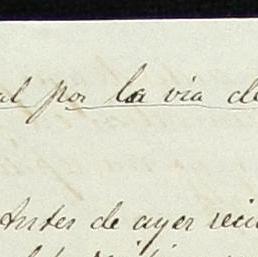 al por la via de
Antes de ayer reci